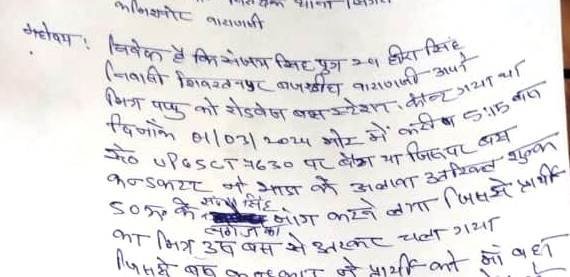 कमिश्नरेट वाराणसी
महोदय: निवेदन है कि संजय सिंह पुत्र स्व हीरा सिंह
निवासी शिवरतनपुर बजरडीहा वाराणसी अपने
मित्र पप्पु को रोडवेज बस स्टेशन, कैन्ट गया था
दिनाँक 01/03/2024 भोर में करीब 5:15 बजे
UP65CT 7630 पर बैठा था जिसपर बस
कन्डक्टर ने भाड़ा के अलावा अतरिक्त शुल्क
50रू के लगेज का मांग करने लगा जिससे प्रार्थी
का मित्र उस बस से उतरकर चला गया
जिससे बस कन्डक्टर ने प्रार्थी को माँ